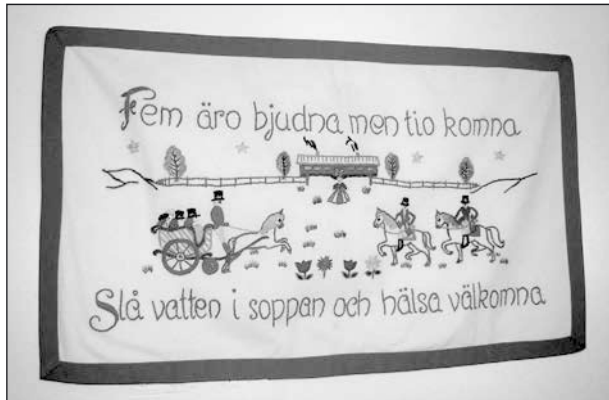 Fem äro bjudna men tio komna
Slå vatten i soppan och hälsa välkomna